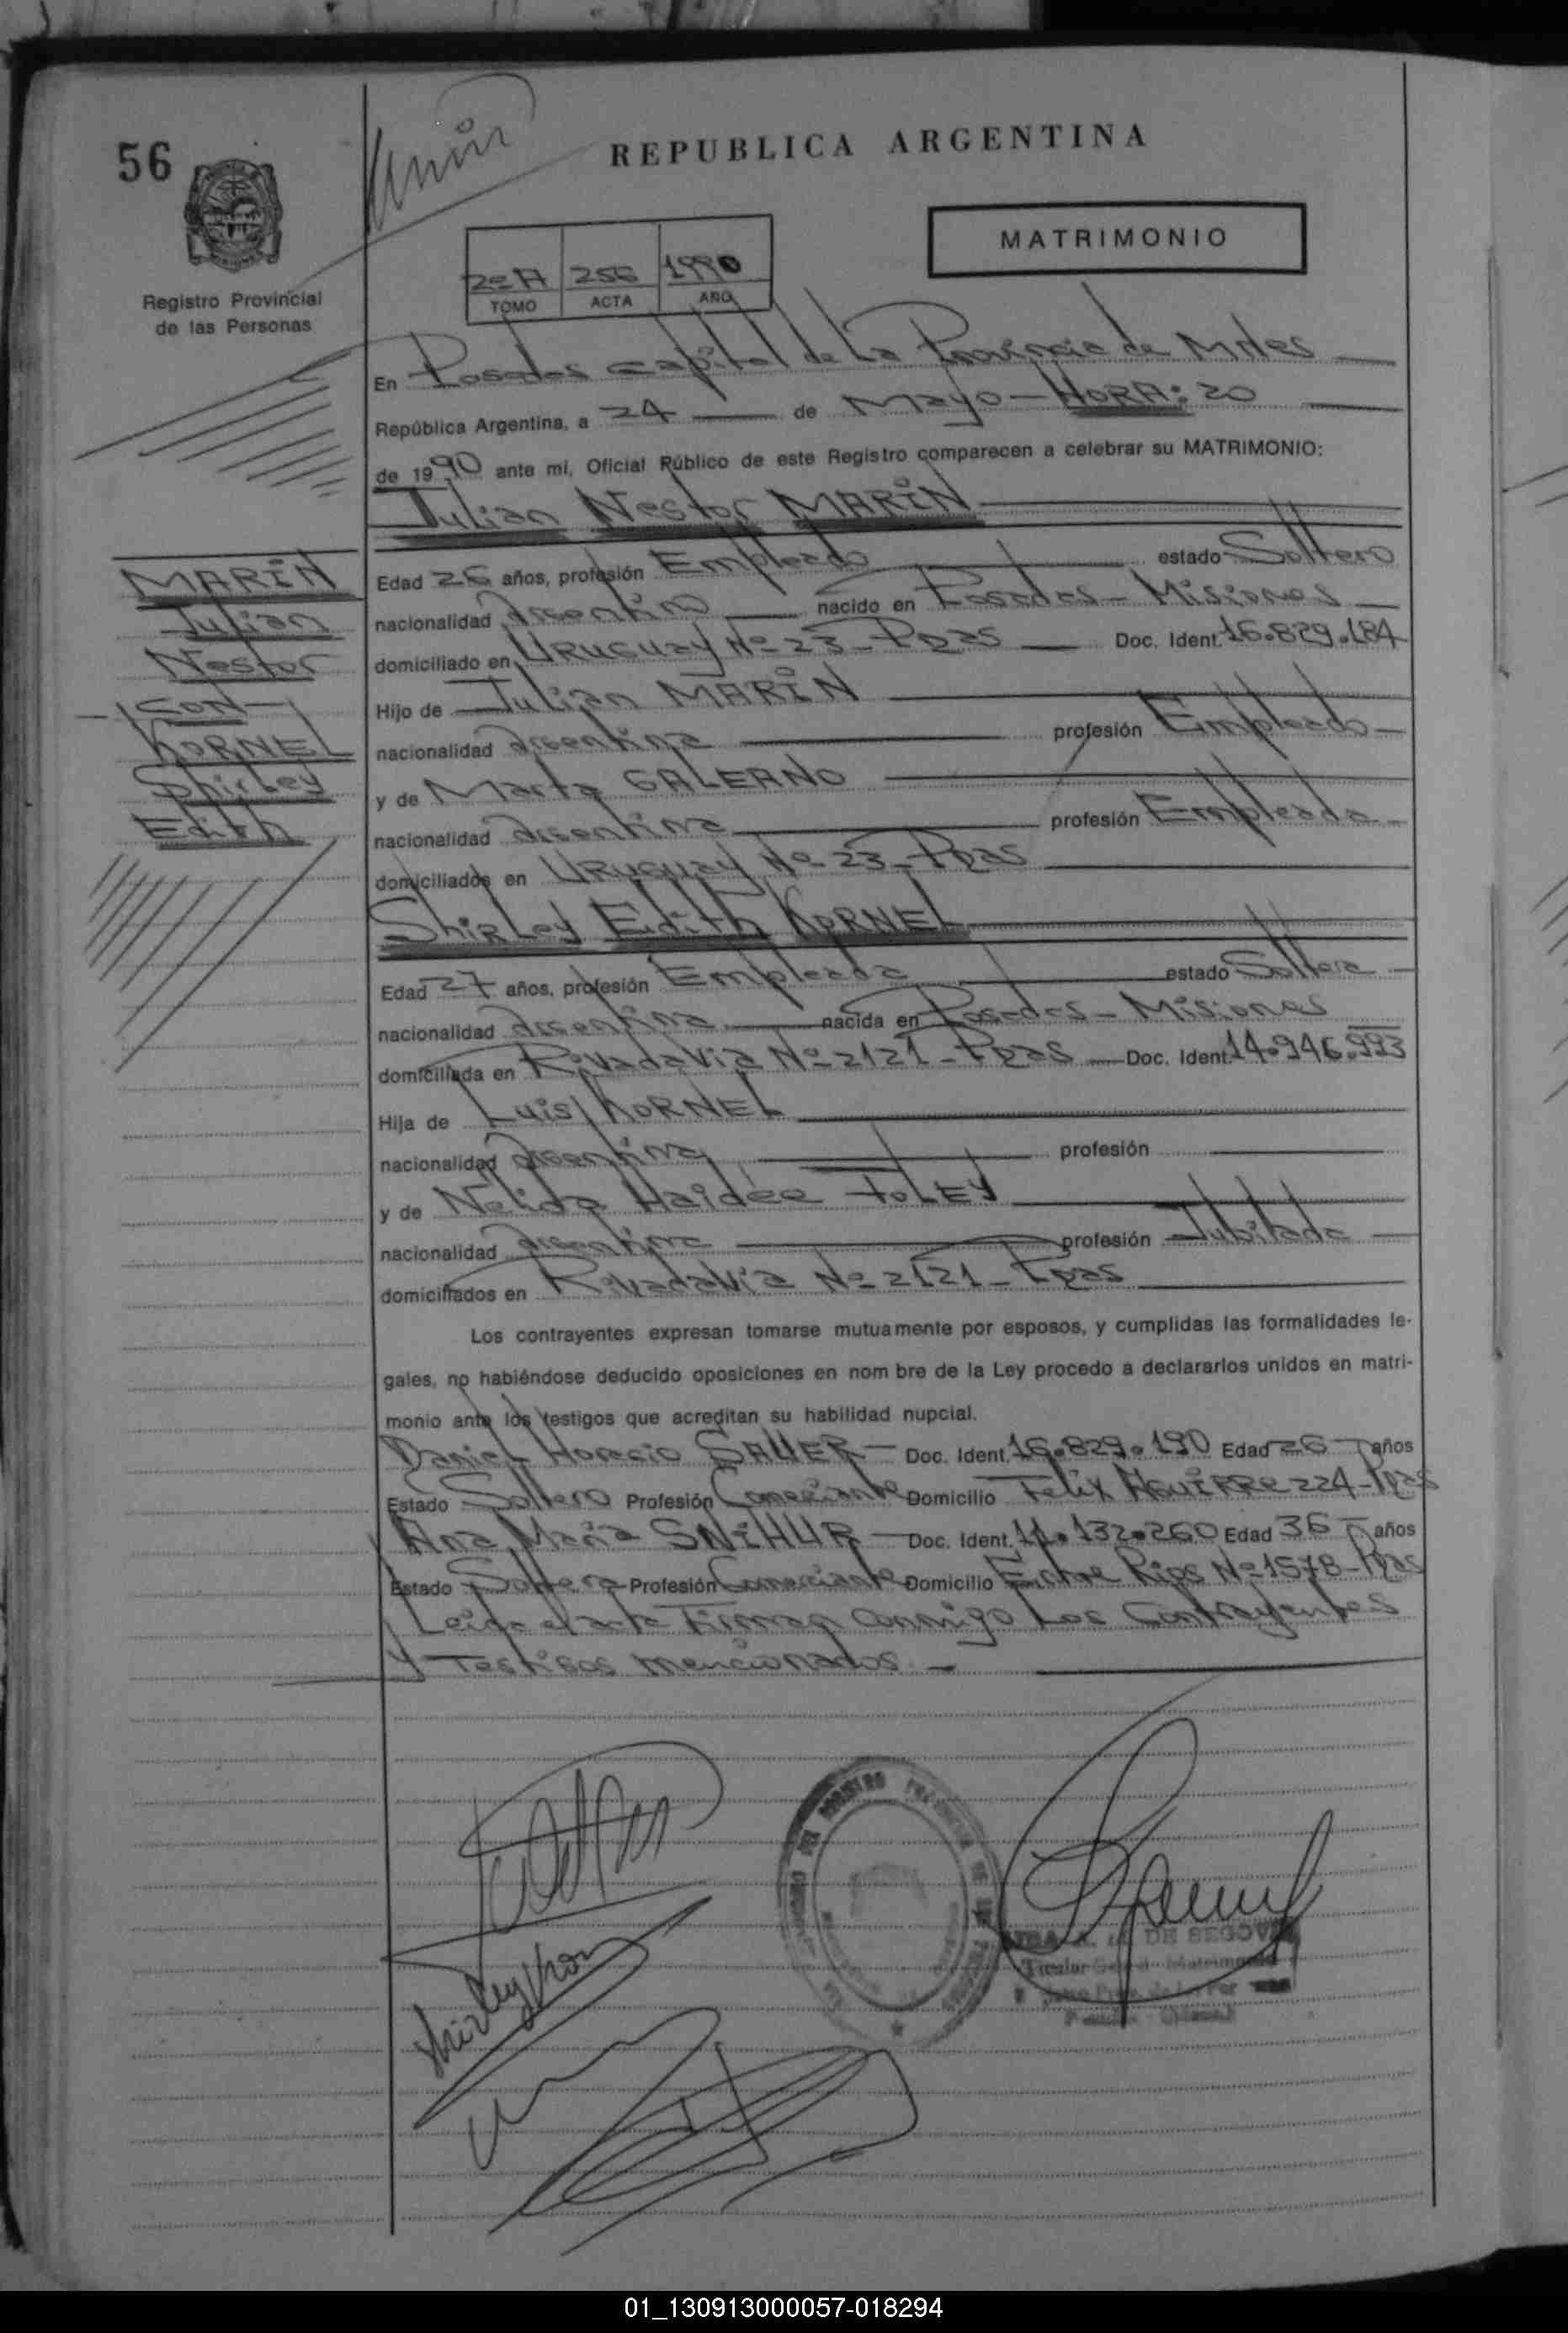 56
REPUBLICA ARGENTINA
MATRIMONIO
2º A 256 1990
TOMO ACTA AÑO
Registro Provincial
de las Personas
En Posadas capital de La Provincia de Mnes
República Argentina, a 24 de Mayo - HORA: 20
de 1990 ante mí, Oficial Público de este Registro comparecen a celebrar su MATRIMONIO:
Julian Nestor MARIN
MARIN
Julian
Nestor
-CON-
KORNEL
Shirley
Edith
Edad 26 años, profesión Empleado estado Soltero
nacionalidad Argentino nacido en Posadas - Misiones
domiciliado en URUGUAY Nº 23 - Pdas Doc. Ident. 16.829.184
Hijo de Julian MARIN
nacionalidad Argentina profesión Empleado
y de Marta GALEANO
nacionalidad Argentina profesión Empleada
domiciliados en URUGUAY Nº 23 - Pdas
Shirley Edith KORNEL
Edad 27 años, profesión Empleada estado Soltera
nacionalidad Argentina nacida en Posadas - Misiones
domiciliada en Rivadavia Nº 2121 - Pdas Doc. Ident. 14.946.993
Hija de Luis KORNEL
nacionalidad Argentina profesión
y de Nelida Haidée FOLEY
nacionalidad Argentina profesión Jubilada
domiciliados en Rivadavia Nº 2121 - Pdas
Los contrayentes expresan tomarse mutuamente por esposos, y cumplidas las formalidades le-
gales, no habiéndose deducido oposiciones en nom bre de la Ley procedo a declararlos unidos en matri-
monio ante los testigos que acreditan su habilidad nupcial.
Daniel Horacio SAUER - Doc. Ident. 16.829.190 Edad 26 años
Estado Soltero Profesión Comerciante Domicilio Felix AGUIRRE 224 - Pdas
Ana Maria SNIHUR - Doc. Ident. 11.132.260 Edad 36 años
Estado Soltera Profesión Comerciante Domicilio Entre Rios Nº 1578 - Pdas
Leida el acta Firman conmigo Los Contrayentes
y Testigos mencionados. -
DE SEGOVIA
01_130913000057-018294